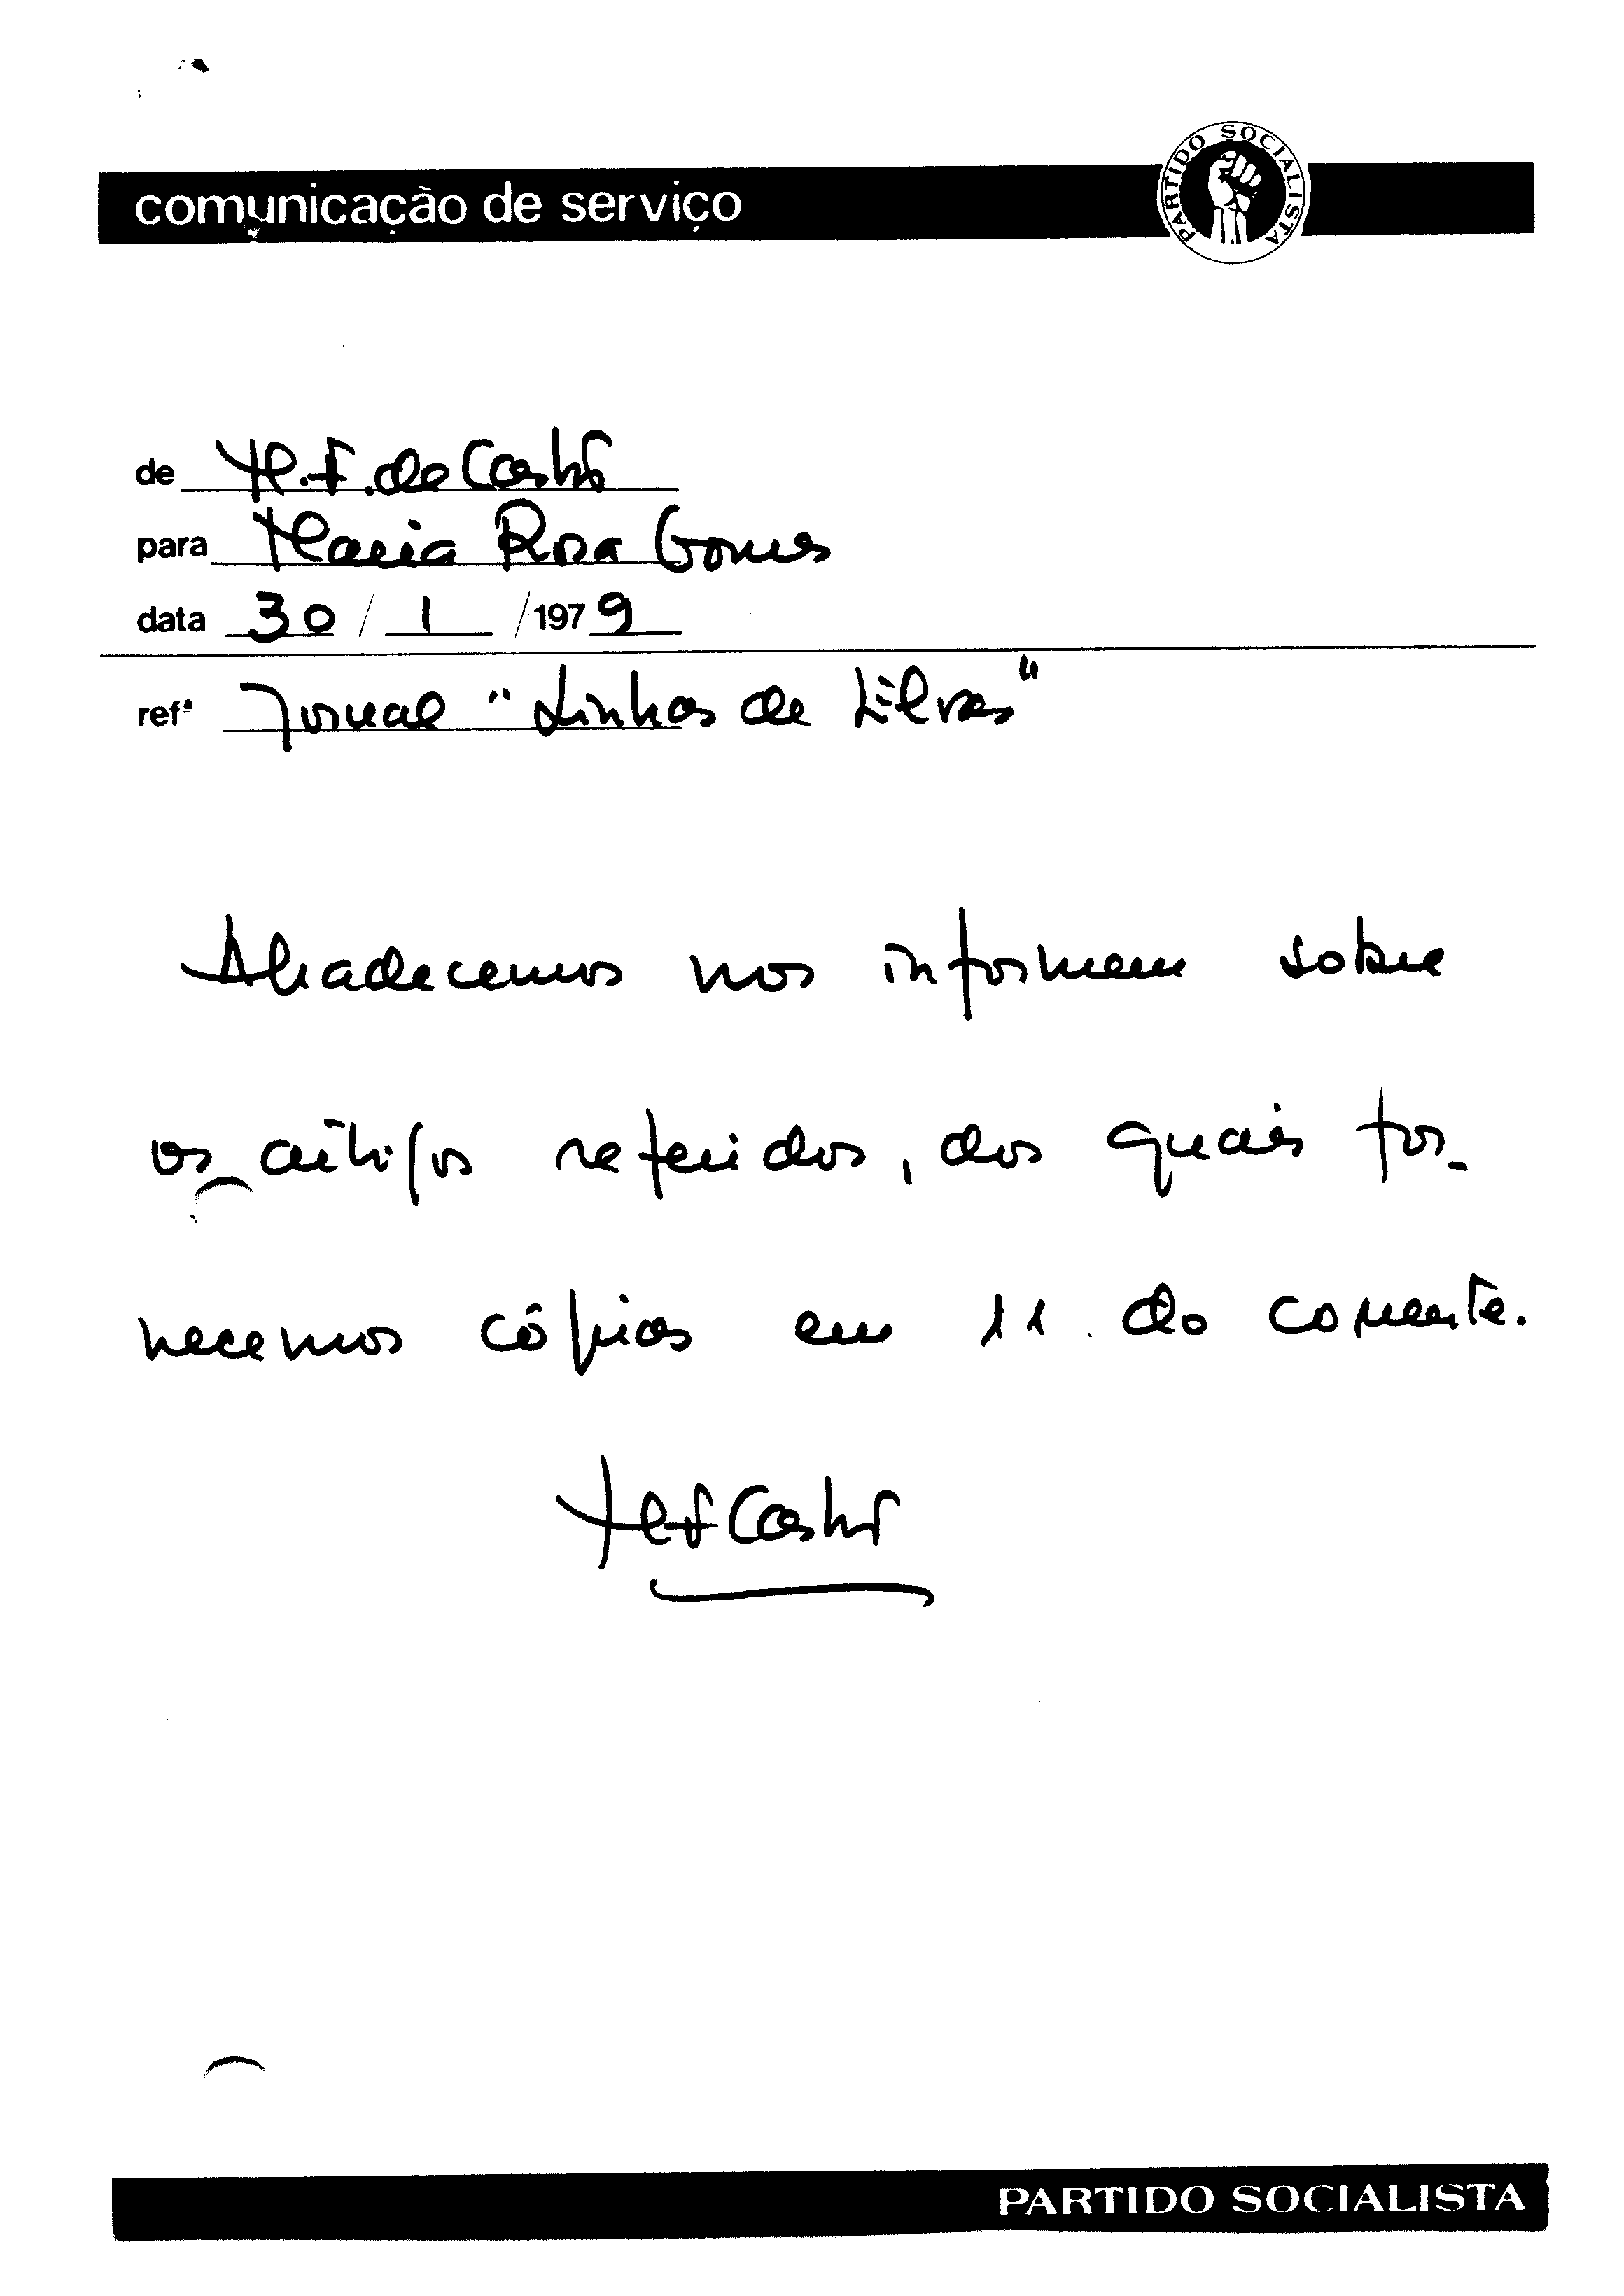 comunicação de serviço
PARTIDO SOCIALISTA
de M. F. de Castro
para Maria Rosa Gomes
data 30 / 1 / 1979
refª Jornal "Linhas de Elvas"
Agradecemos nos informem sobre
os artigos referidos, dos quais for-
necemos cópias em 11 do corrente.
MFCastro
PARTIDO SOCIALISTA